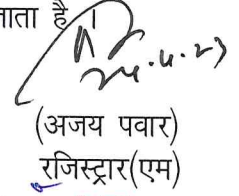 जाता है ।
24.4.23
(अजय पवार)
रजिस्ट्रार(एम)